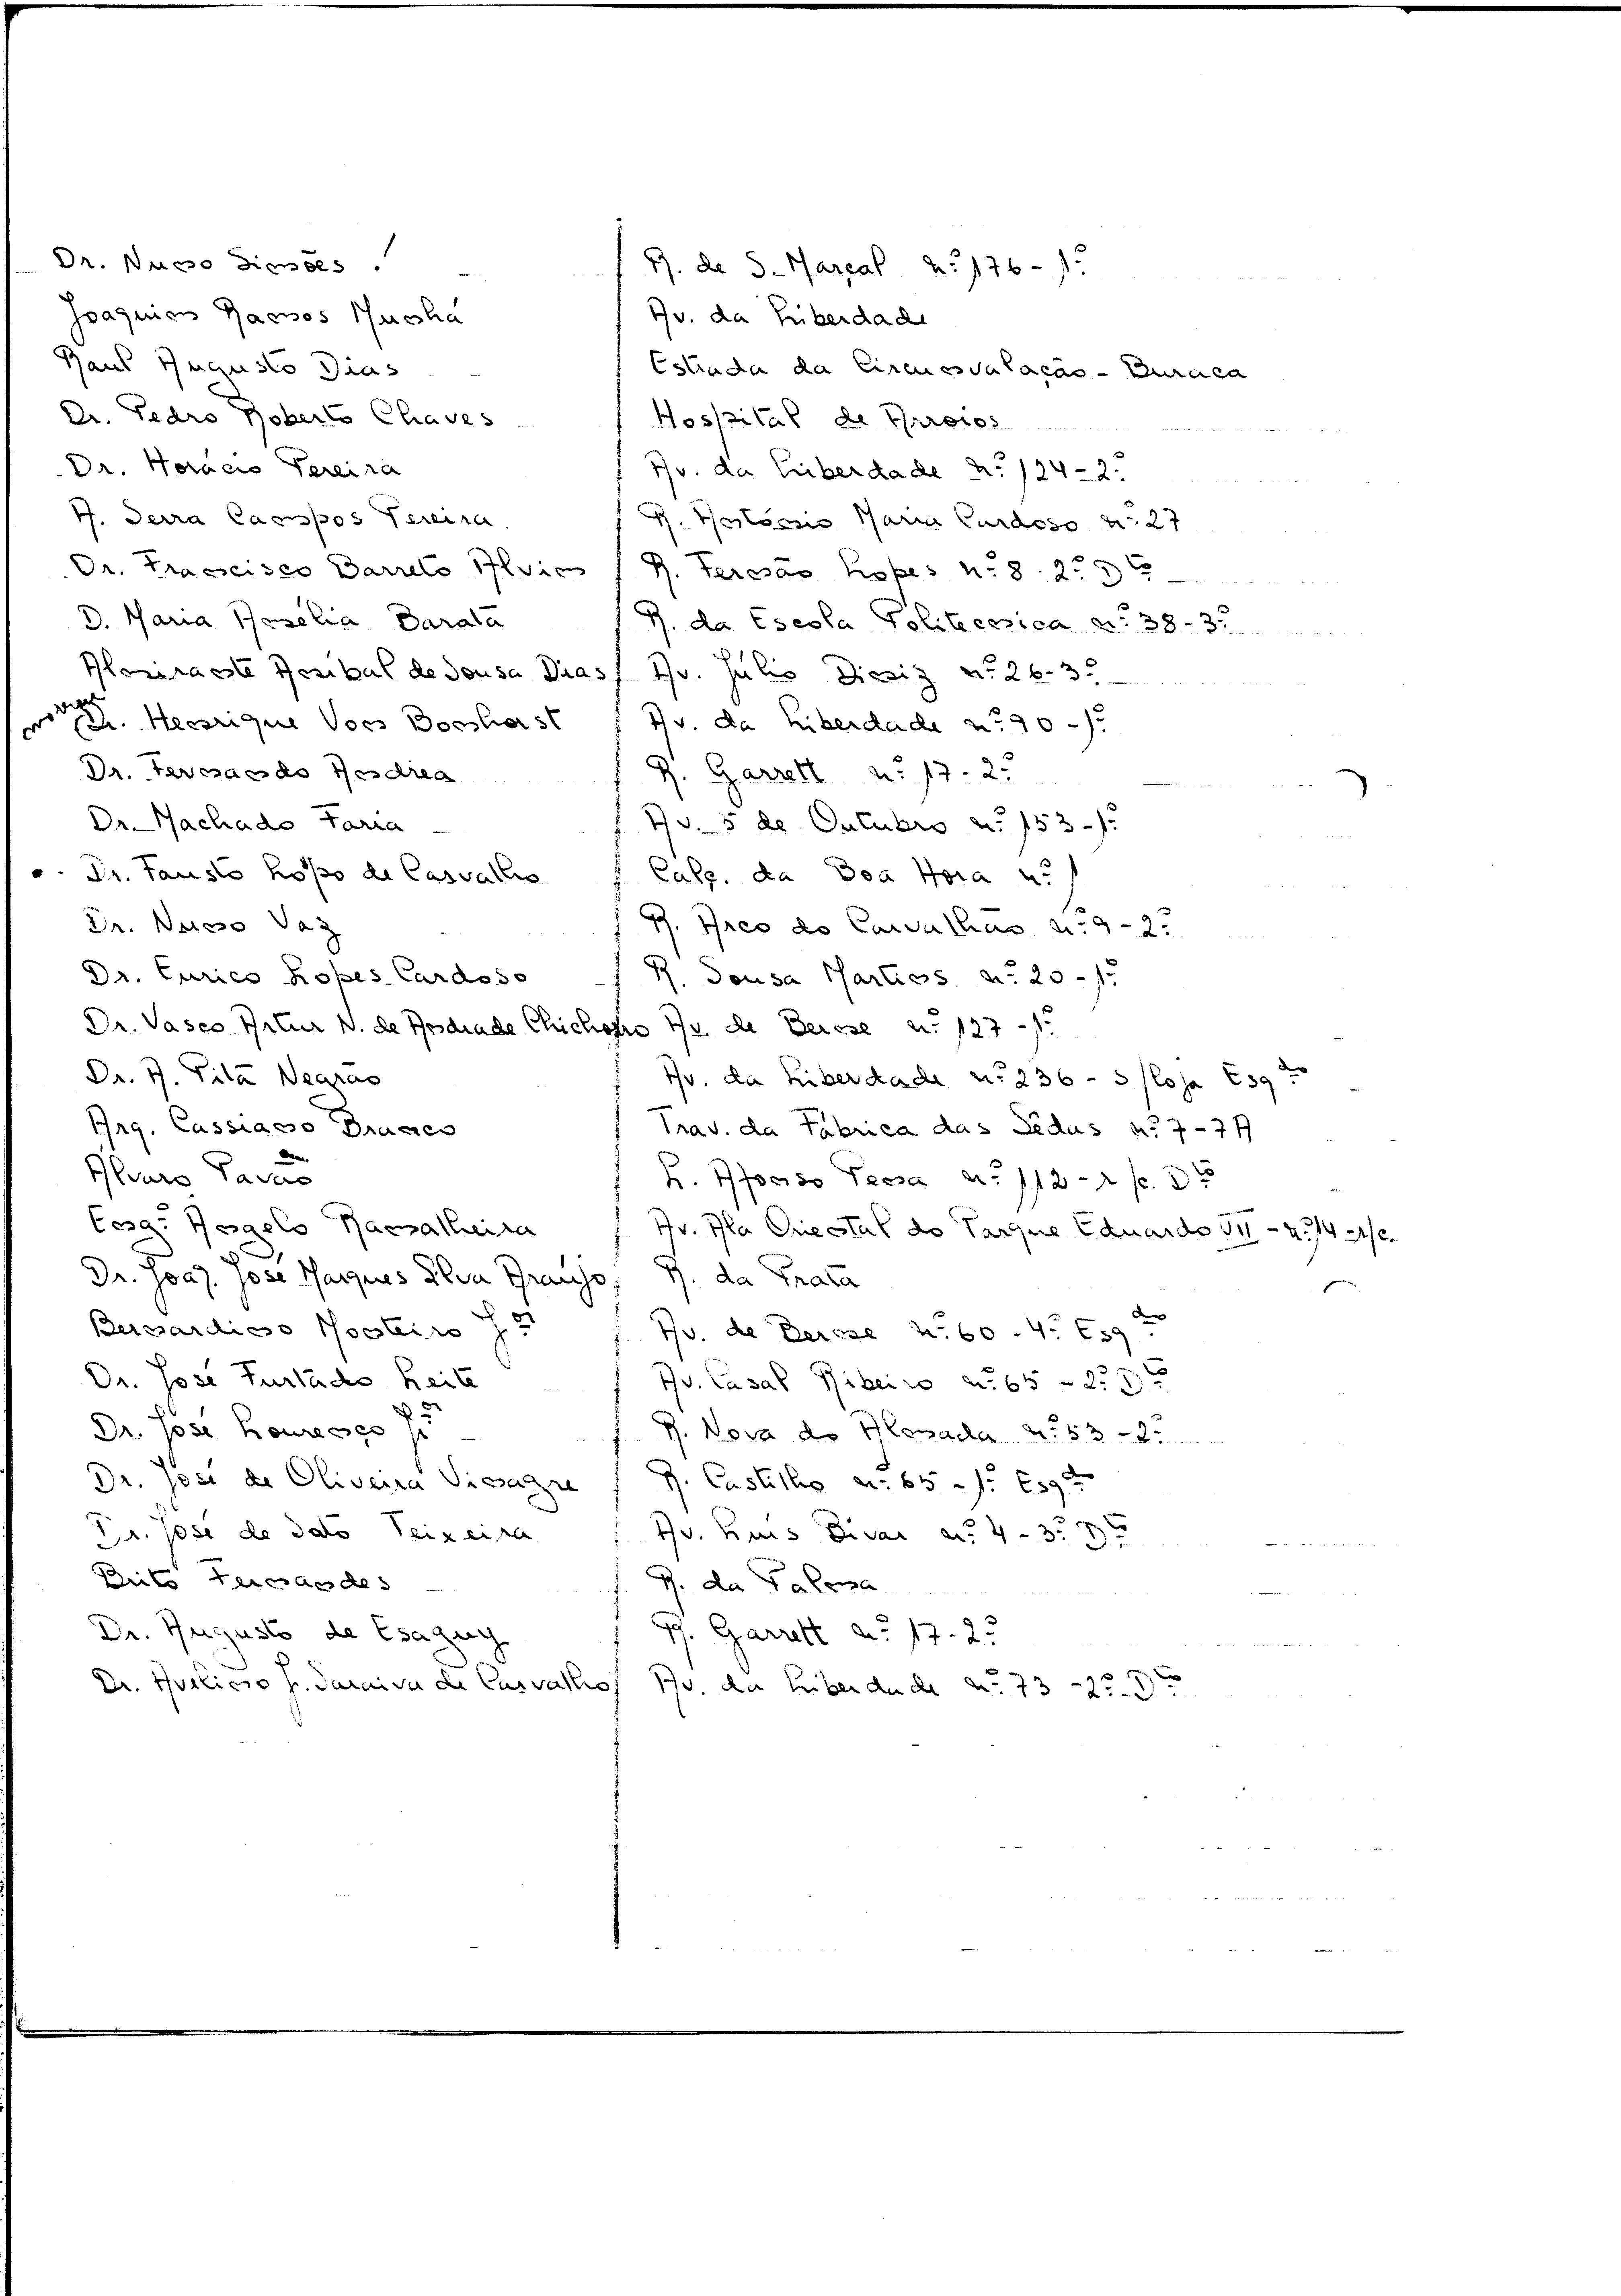 Dr. Nuno Simões. / R. de S. Marçal nº 176 - 1º
Joaquim Ramos Munhá / Av. da Liberdade
Raul Augusto Dias / Estrada da Circunvalação - Buraca
Dr. Pedro Roberto Chaves / Hospital de Arroios
Dr. Horácio Pereira / Av. da Liberdade nº 124 - 2º
A. Serra Campos Pereira / R. António Maria Cardoso nº 27
Dr. Francisco Barreto Alvim / R. Fernão Lopes nº 8 - 2º Dto
D. Maria Amélia Barata / R. da Escola Politecnica nº 38 - 3º
Almirante Anibal de Sousa Dias / Av. Júlio Diniz nº 26 - 3º
Dr. Henrique Von Bonhorst / Av. da Liberdade nº 90 - 1º
Dr. Fernando Andrea / R. Garrett nº 17 - 2º
Dr. Machado Faria / Av. 5 de Outubro nº 153 - 1º
Dr. Fausto Lopo de Carvalho / Calç. da Boa Hora nº 1
Dr. Nuno Vaz / R. Arco do Carvalhão nº 9 - 2º
Dr. Eurico Lopes Cardoso / R. Sousa Martins nº 20 - 1º
Dr. Vasco Artur N. de Andrade Chichorro Av. de Berne nº 127 - 1º
Dr. A. Pita Negrão / Av. da Liberdade nº 236 - s/loja Esqdo
Arq. Cassiano Branco / Trav. da Fábrica das Sedas nº 7 - 7A
Alvaro Pavão / L. Afonso Pena nº 112 - r/c. Dto
Engº Angelo Ramalheira / Av. Ala Oriental do Parque Eduardo VII - nº 14 - r/c.
Dr. Joaq. José Marques Silva Araujo / R. da Prata
Bernardino Monteiro Jor / Av. de Berne nº 60 - 4º Esqdo
Dr. José Furtado Leite / Av. Casal Ribeiro nº 65 - 2º Dto
Dr. José Lourenço Jor / R. Nova do Almada nº 53 - 2º
Dr. José de Oliveira Vinagre / R. Castilho nº 65 - 1º Esqdo
Dr. José de Dato Teixeira / Av. Luis Bivar nº 4 - 3º Dto
Brito Fernandes / R. da Palma
Dr. Augusto de Esaguy / R. Garrett nº 17 - 2º
Dr. Avelino J. Saraiva de Carvalho / Av. da Liberdade nº 73 - 2º - Dto